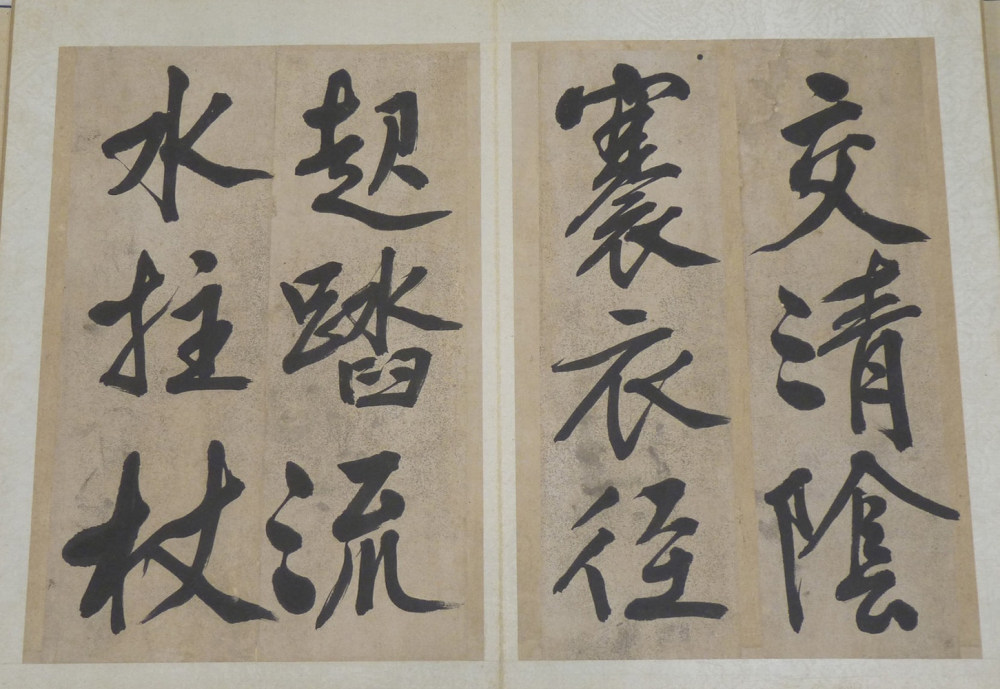 交清陰
褰衣徑
起踏流
水拄杖